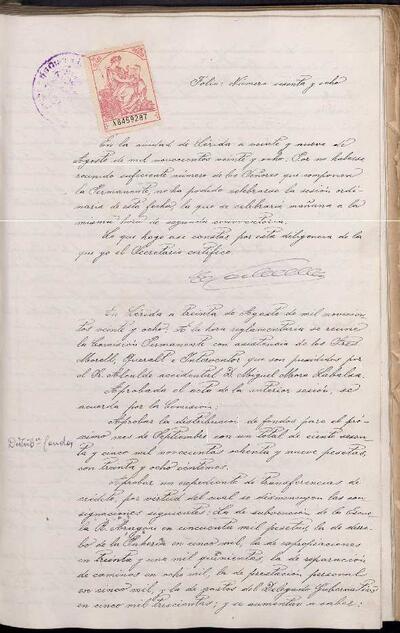 Folio: Número sesenta y ocho
A8459287
En la ciudad de Lérida a veinte y nueve de
Agosto de mil novecientos veinte y ocho. Por no haberse
reunido suficiente número de los Señores que componen
la Permanente, no ha podido celebrarse la sesión ordi-
naria de esta fecha, la que se celebrará mañana a la
misma hora de segunda convocatoria.
Lo que hago constar por esta diligencia de la
que yo el Secretario certifico.
En Lérida a treinta de Agosto de mil novecien-
tos veinte y ocho. A la hora reglamentaria se reunió
la Comisión Permanente con asistencia de los Sres
Morell, Queralt e Interventor que son presididos por
el Sr. Alcalde accidental D. Miguel Mora
Aprobada el acta de la anterior sesión, se
acuerda por la Comisión:
Distribón fondos
Aprobar la distribución de fondos para el pró-
ximo mes de Septiembre con un total de ciento sesen-
ta y cinco mil novecientas ochenta y nueve pesetas,
con treinta y ocho centimos.
Aprobar un expediente de transferencias de
crédito, por vertud del cual se disminuyen las con
signaciones siguientes: La de subvención de la
a R. Aragón en cincuenta mil pesetas, la de
de la Pahería en cinco mil, la de expropiaciones
en treinta y una mil quinientas, la de reparación
de caminos en ocho mil, la de prestación personal
en cinco mil y la de gastos del Delegado Gubernativo
en cinco mil trescientas; y se aumentan a saber: